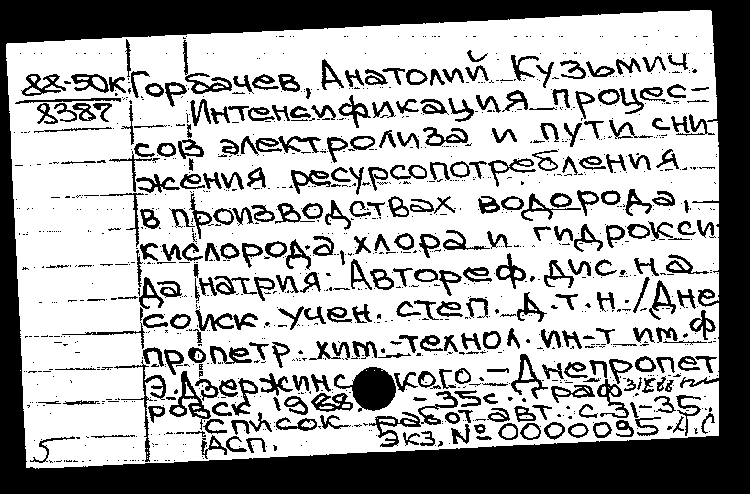 88-50к Горбачев, Анатолий Кузьмич.
8387 Интенсификация процес-
сов электролиза и пути сни-
жения ресурсопотребления
в производствах водорода,
кислорода, хлора и гидрокси
да натрия: Автореф. дис. на
соиск. учен. степ. д.т.н./Дне
пропетр. хим.-технол. ин-т им. Ф
Э. Дзержинского. - Днепропет
ровск, 1988. - 35с.: граф.
список работ авт.: с. 31-35.
5 ДСП. Экз. № 0000095